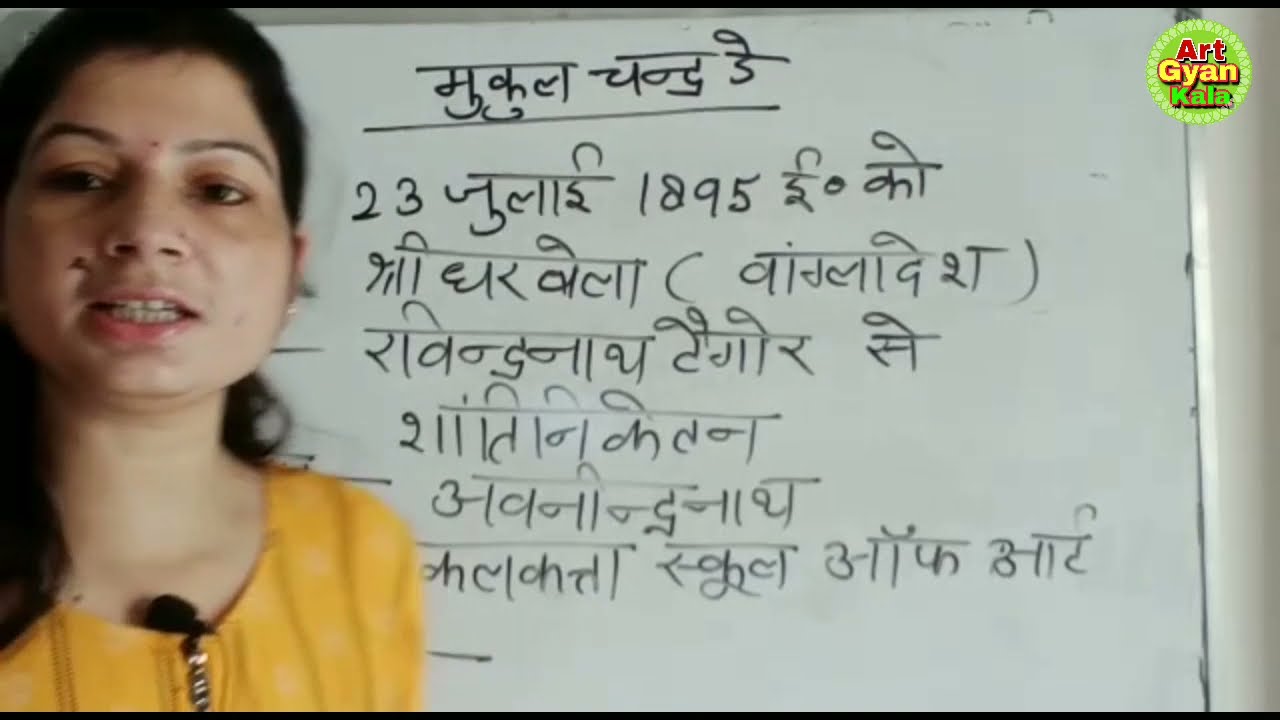 मुकुल चन्द्र डे
23 जुलाई 1895 ई० को
श्रीधरखेला ( वांग्लादेश )
रविन्द्रनाथ टैगोर से
शांतिनिकेतन
अवनीन्द्रनाथ
कलकत्ता स्कूल ऑफ आर्ट
Art
Gyan
Kala